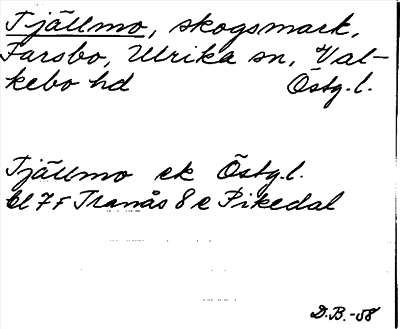 Tjällmo, skogsmark,
Farsbo, Ulrika sn, Val-
kebo hd Östg.l.
Tjällmo ek Östg.l.
bl 7F Tranås 8e Pikedal
D.B.-58